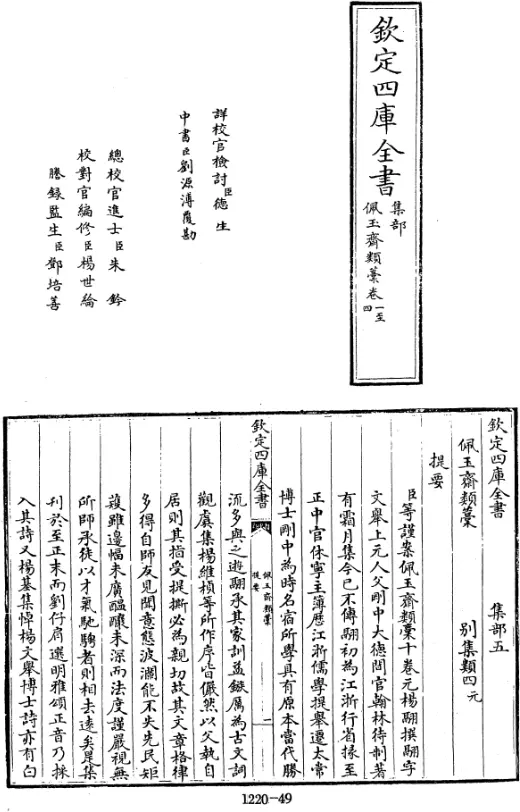 欽定四庫全書
集部
佩玉齋類藁卷一至四
詳校官檢討臣德生
中書臣劉源溥覆勘
總校官進士臣朱鈐
校對官編修臣楊世綸
謄錄監生臣鄧培善
欽定四庫全書
集部五
佩玉齋類藁
別集類四元
提要
臣等謹案佩玉齋類藁十卷元楊翮撰翮字
文舉上元人父剛中大德間官翰林待制著
有霜月集今已不傳翮初為江浙行省掾至
正中官休寧主簿歷江浙儒學提舉遷太常
博士剛中為時名宿所學具有原本當代勝
欽定四庫全書
佩玉齋類藁
提要
一
流多與之遊翮承其家訓益鏃厲為古文詞
觀虞集楊維楨等所作序皆儼然以父執自
居則其指受提撕必為親切故其文章格律
多得自師友見聞意態波瀾能不失先民矩
矱雖邊幅未廣醞釀未深而法度謹嚴視無
所師承徒以才氣馳騁者則相去遠矣是集
刊於至正末而劉仔肩選明雅頌正音乃採
入其詩又楊基集悼楊文舉博士詩亦有白
1220-49